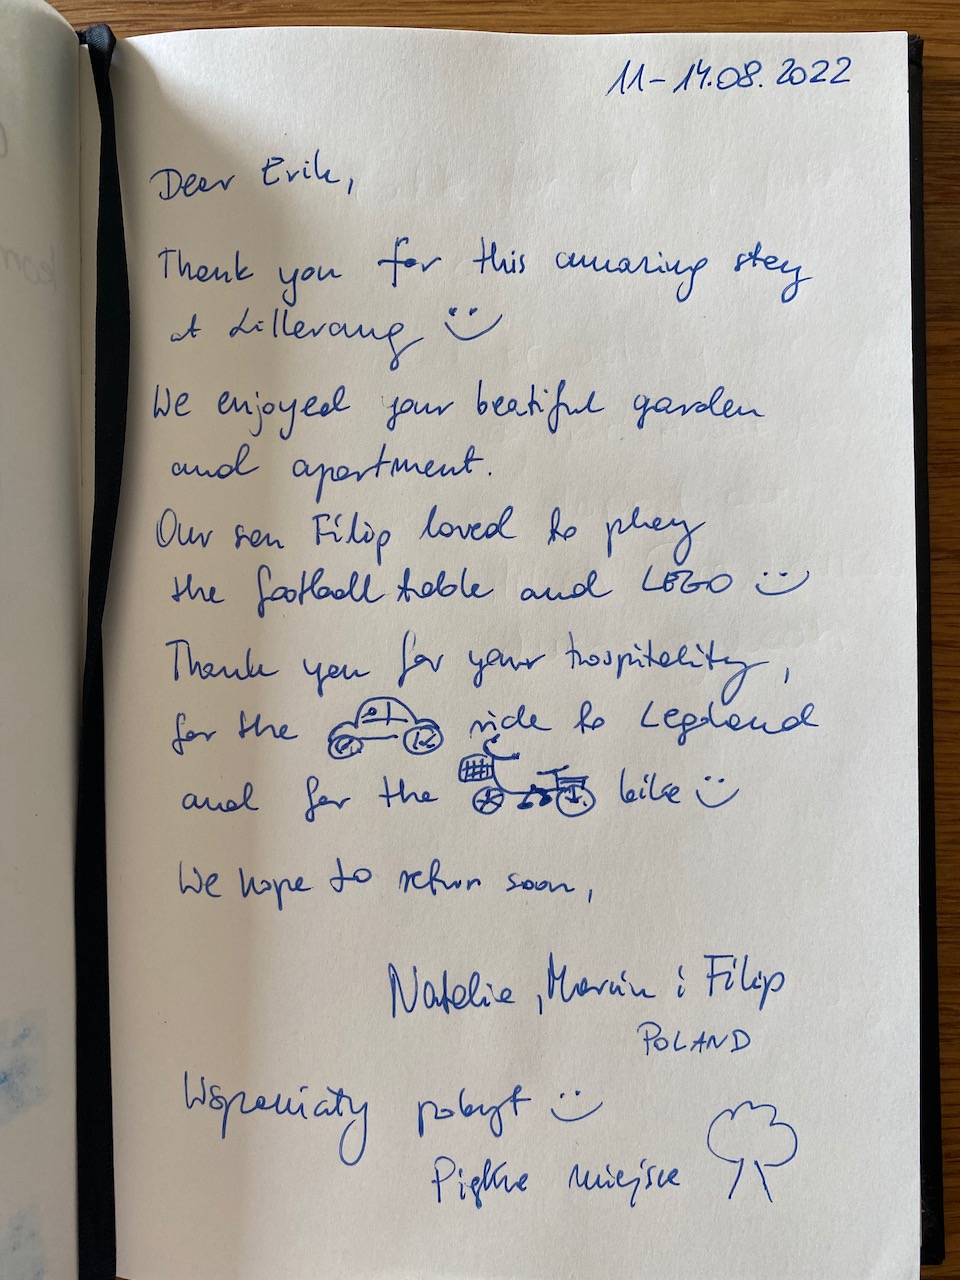 11-14.08.2022
Dear Erik,
Thank you for this amazing stay
at Lillevang :)
We enjoyed your beatiful garden
and apartment.
Our son Filip loved to play
the football table and LEGO :)
Thank you for your hospitality,
for the ride to Legoland
and for the bike :)
We hope to return soon,
Natalia, Marcin i Filip
POLAND
Wspaniały pobyt :)
Piękne miejsce